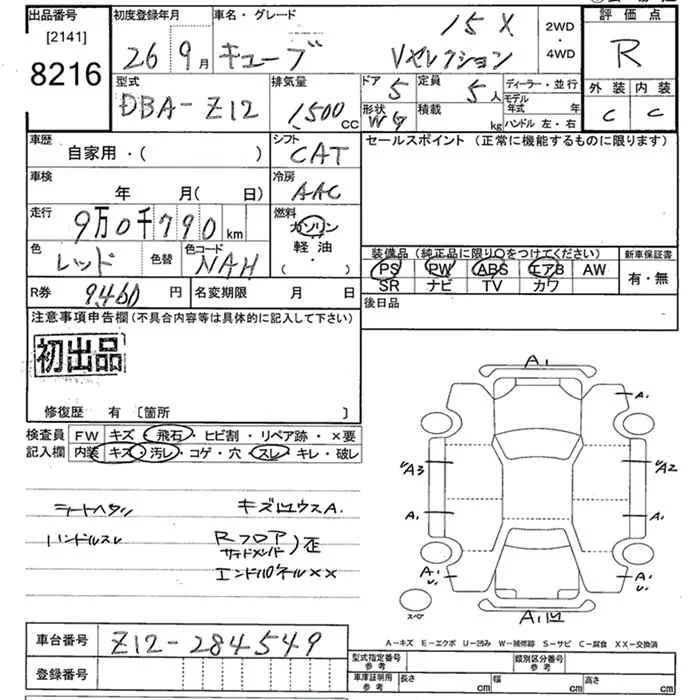 出品番号
[2141]
8216
初度登録年月
26 9月
車名・グレード
キューブ
15X
Vセレクション
2WD
・
4WD
評価点
R
外装 内装
C C
型式
DBA-Z12
排気量
1,500 CC
ドア 5
形状 WG
定員 5人
積載 kg
ディーラー・並行
モデル年式 年
ハンドル 左・右
車歴
自家用・( )
シフト
CAT
セールスポイント (正常に機能するものに限ります)
車検
年 月( 日)
冷房
AAC
走行
9万0千790 km
燃料
ガソリン
軽油
・( )
色
レッド
色替
色コード
NAH
装備品(純正品に限り○をつけてください)
PS PW ABS エアB AW
SR ナビ TV カワ
新車保証書
有・無
R券 9460 円
名変期限 月 日
後日品
注意事項申告欄(不具合内容等は具体的に記入して下さい)
初出品
修復歴 有 [箇所 ]
検査員
記入欄
FW キズ・飛石・ヒビ割・リペア跡・×要
内装 キズ・汚レ・コゲ・穴・スレ・キレ・破レ
シートヘタリ
ハンドルスレ
キズ凹ウスA.
Rフロア
サイドメンバ
)歪
エンドパネル××
A1
A1
UA3
UA2
A1
A1
A1
U1
A1
U1
スペア
A1凹
A-キズ E-エクボ U-凹み W-補修跡 S-サビ C-腐食 XX-交換済
車台番号 Z12-284549
登録番号
型式指定番号
参考
類別区分番号
参考
車庫証明用
参考
長さ cm
幅 cm
高さ cm